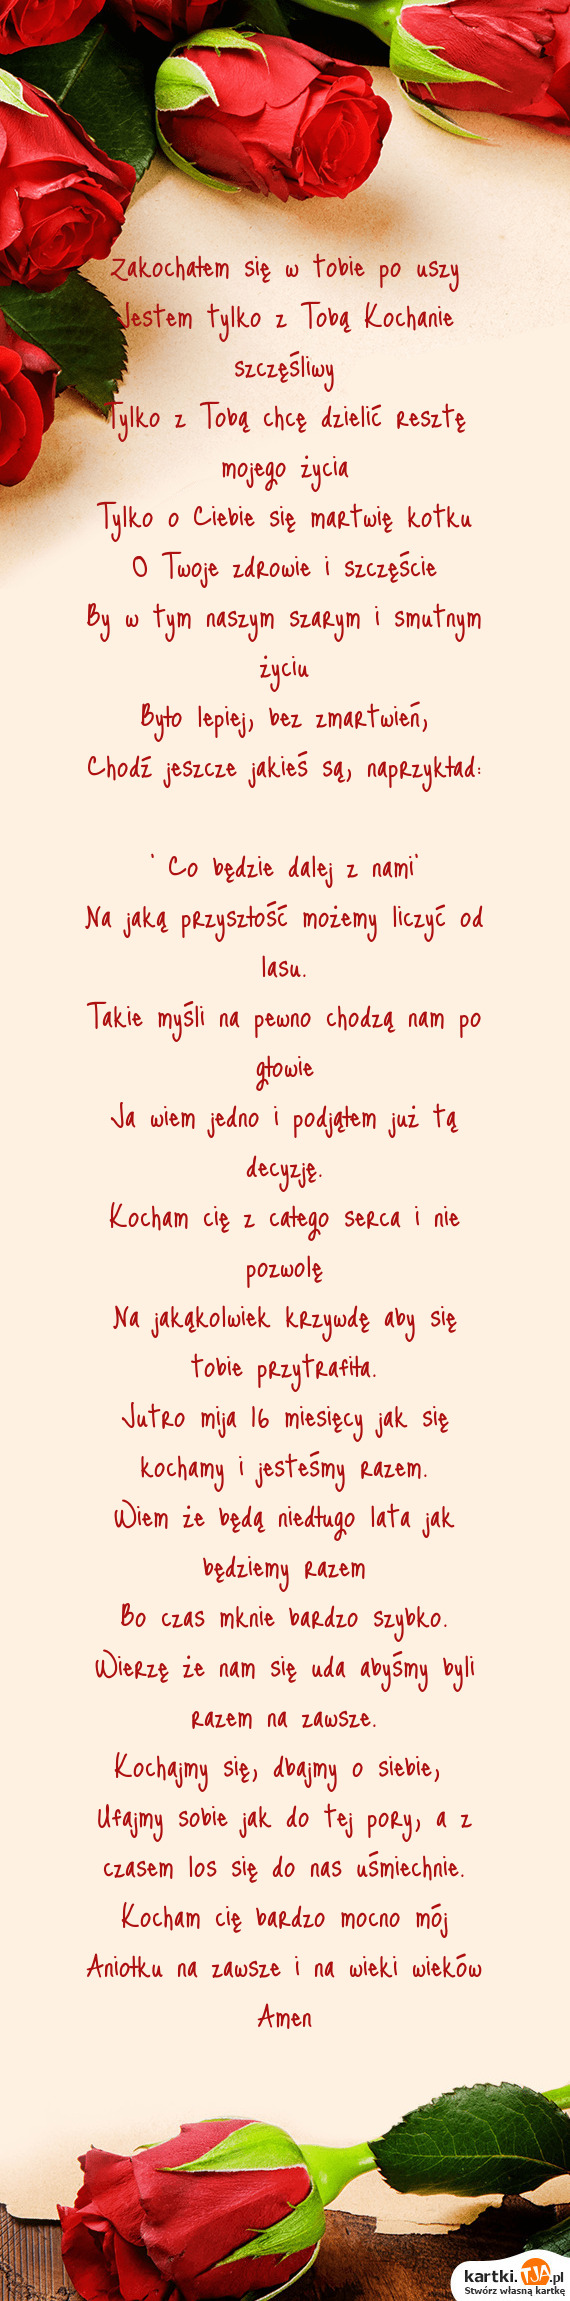 Zakochałem się w tobie po uszy
Jestem tylko z Tobą Kochanie
szczęśliwy
Tylko z Tobą chcę dzielić resztę
mojego życia
Tylko o Ciebie się martwię kotku
O Twoje zdrowie i szczęście
By w tym naszym szarym i smutnym
życiu
Było lepiej, bez zmartwień,
Chodź jeszcze jakieś są, naprzykład:
' Co będzie dalej z nami'
Na jaką przyszłość możemy liczyć od
lasu.
Takie myśli na pewno chodzą nam po
głowie
Ja wiem jedno i podjąłem już tą
decyzję.
Kocham cię z całego serca i nie
pozwolę
Na jakąkolwiek krzywdę aby się
tobie przytrafiła.
Jutro mija 16 miesięcy jak się
kochamy i jesteśmy razem.
Wiem że będą niedługo lata jak
będziemy razem
Bo czas mknie bardzo szybko.
Wierzę że nam się uda abyśmy byli
razem na zawsze.
Kochajmy się, dbajmy o siebie,
Ufajmy sobie jak do tej pory, a z
czasem los się do nas uśmiechnie.
Kocham cię bardzo mocno mój
Aniołku na zawsze i na wieki wieków
Amen
kartki.TJA.pl
Stwórz własną kartkę